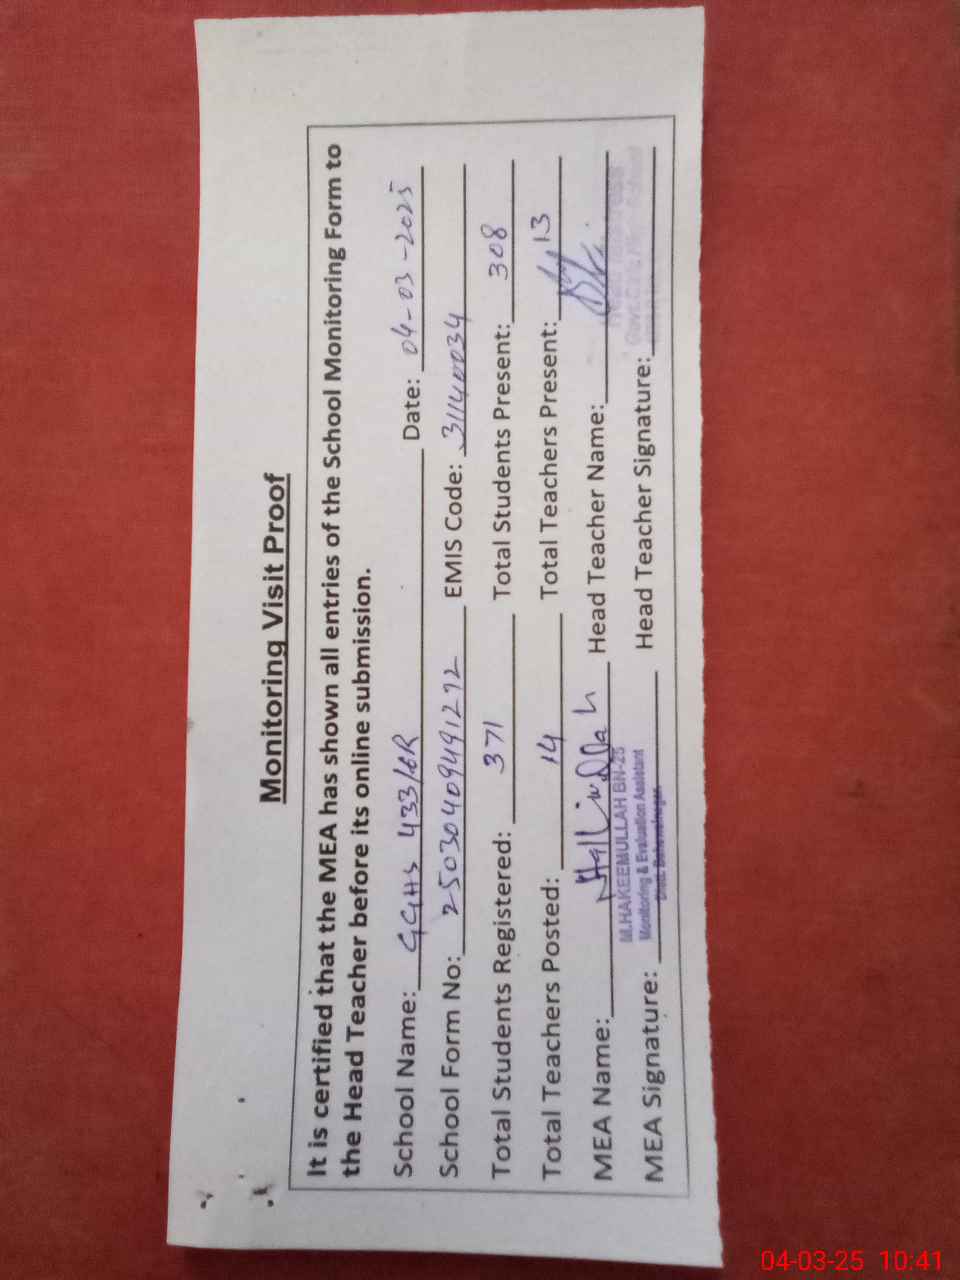 Monitoring Visit Proof
It is certified that the MEA has shown all entries of the School Monitoring Form to
the Head Teacher before its online submission.
School Name: GGHS 433/6R Date: 04-03-2025
School Form No: 25030409491292 EMIS Code: 31140034
Total Students Registered: 371 Total Students Present: 308
Total Teachers Posted: 14 Total Teachers Present: 13
MEA Name: Head Teacher Name:
M.HAKEEMULLAH BN-25
Monitoring & Evaluation Assistant
Distt. Bahawalnagar
MEA Signature: Head Teacher Signature:
04-03-25 10:41